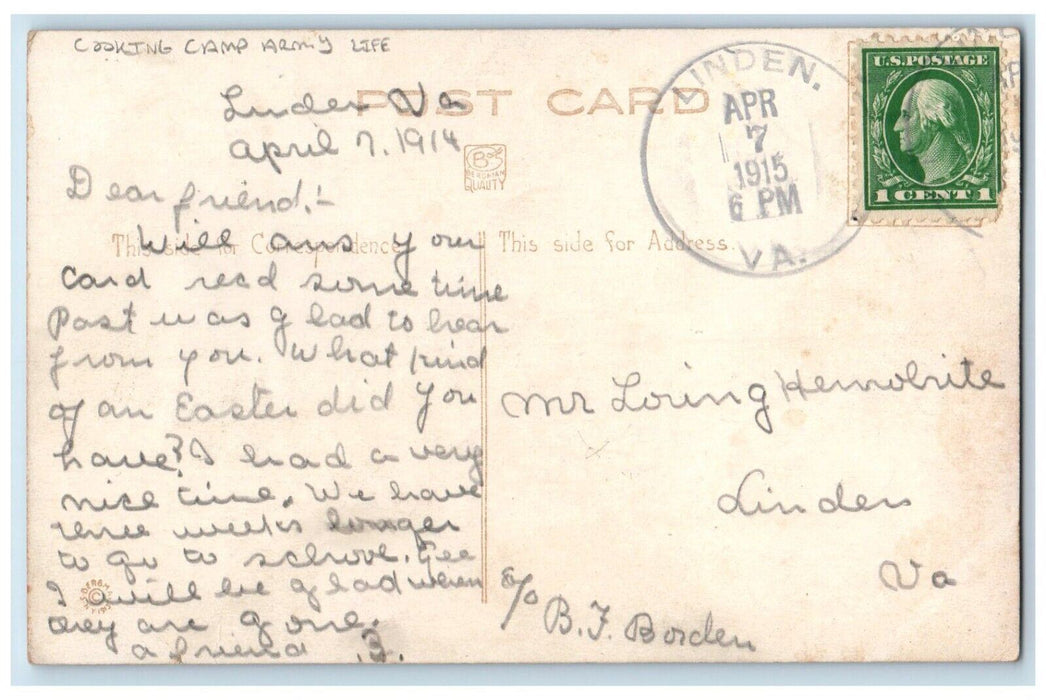 COOKING CAMP ARMY LIFE
POST CARD
Linden Va
April 7, 1914
BERGMAN
QUALITY
LINDEN.
APR
7
1915
6 PM
VA.
U.S. POSTAGE
1 CENT 1
This side for Correspondence
This side for Address.
Dear friend:-
Will ans your
card recd some time
Past was glad to hear
from you. What kind
of an Easter did you
have? I had a very
nice time. We have
three weeks longer
to go to school. Gee
I will be glad when
they are gone.
a friend
Mr Loring Hemobrite
Linden
Va
c/o B. F. Borden